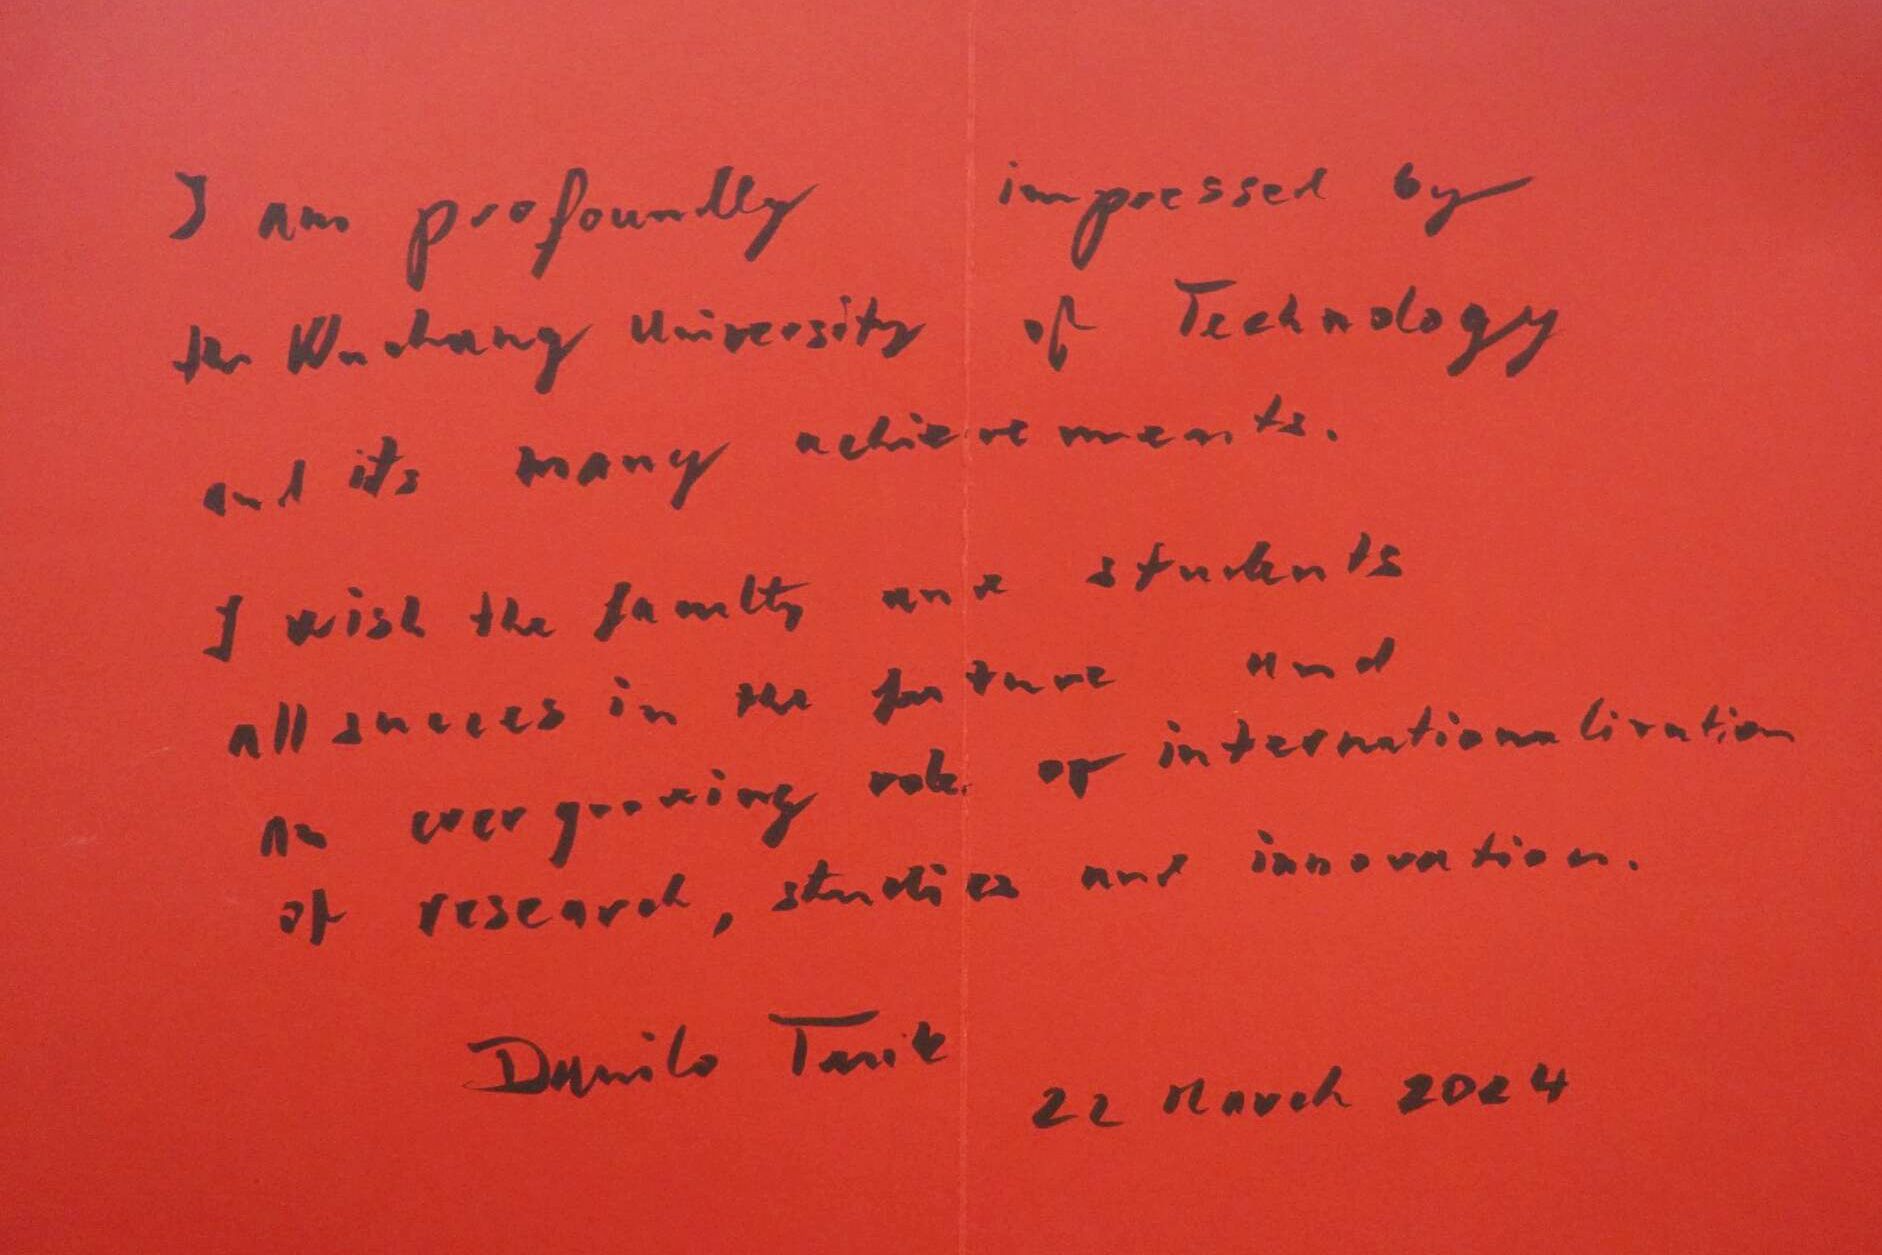 I am profoundly impressed by
the Wuchang University of Technology
and its many achievements.
I wish the faculty and students
all succes in the future and
an ever growing role of internationalization
of research, studies and innovation.
Danilo Türk
22 March 2024